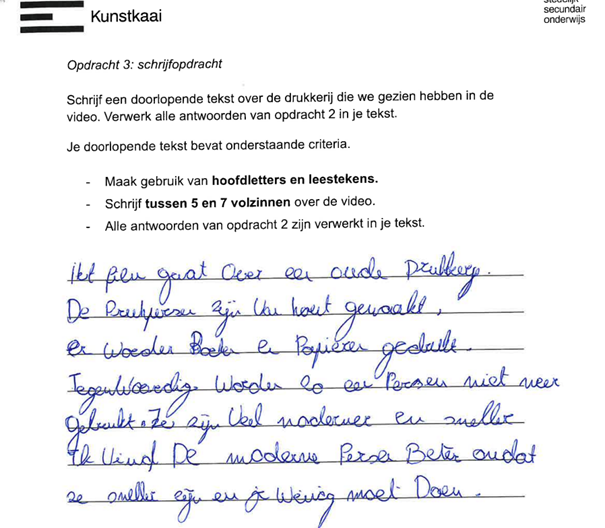 Kunstkaai
secundair
onderwijs
Opdracht 3: schrijfopdracht
Schrijf een doorlopende tekst over de drukkerij die we gezien hebben in de
video. Verwerk alle antwoorden van opdracht 2 in je tekst.
Je doorlopende tekst bevat onderstaande criteria.
- Maak gebruik van hoofdletters en leestekens.
- Schrijf tussen 5 en 7 volzinnen over de video.
- Alle antwoorden van opdracht 2 zijn verwerkt in je tekst.
Het film gaat Over een oude Drukkerij.
De Drukpersen zijn Van hout gemaakt,
er Worden Boeken en Papieren gedrukt.
Tegenwoordig Worden zo een Persen niet meer
gebruikt. Ze zijn Veel moderner en sneller
Ik Vind De moderne Persen Beter omdat
ze sneller zijn en je Weinig moet Doen.